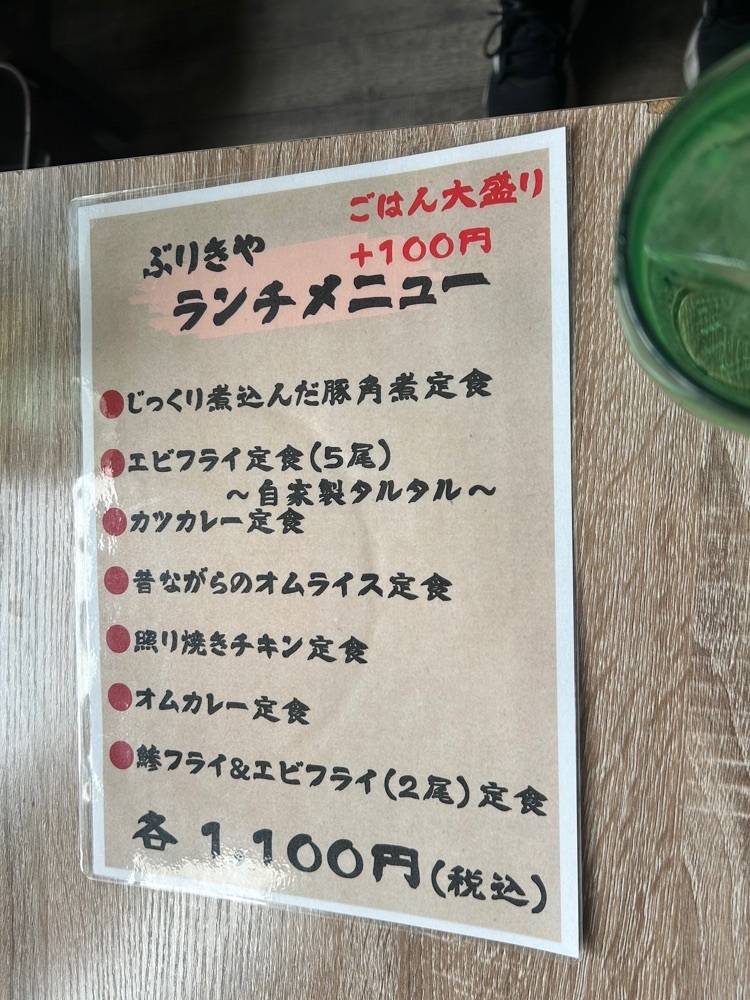 ごはん大盛り
+100円
ぶりきや
ランチメニュー
じっくり煮込んだ豚角煮定食
エビフライ定食(5尾)
～自家製タルタル～
カツカレー定食
昔ながらのオムライス定食
照り焼きチキン定食
オムカレー定食
鯵フライ&エビフライ(2尾)定食
各 1,100円(税込)